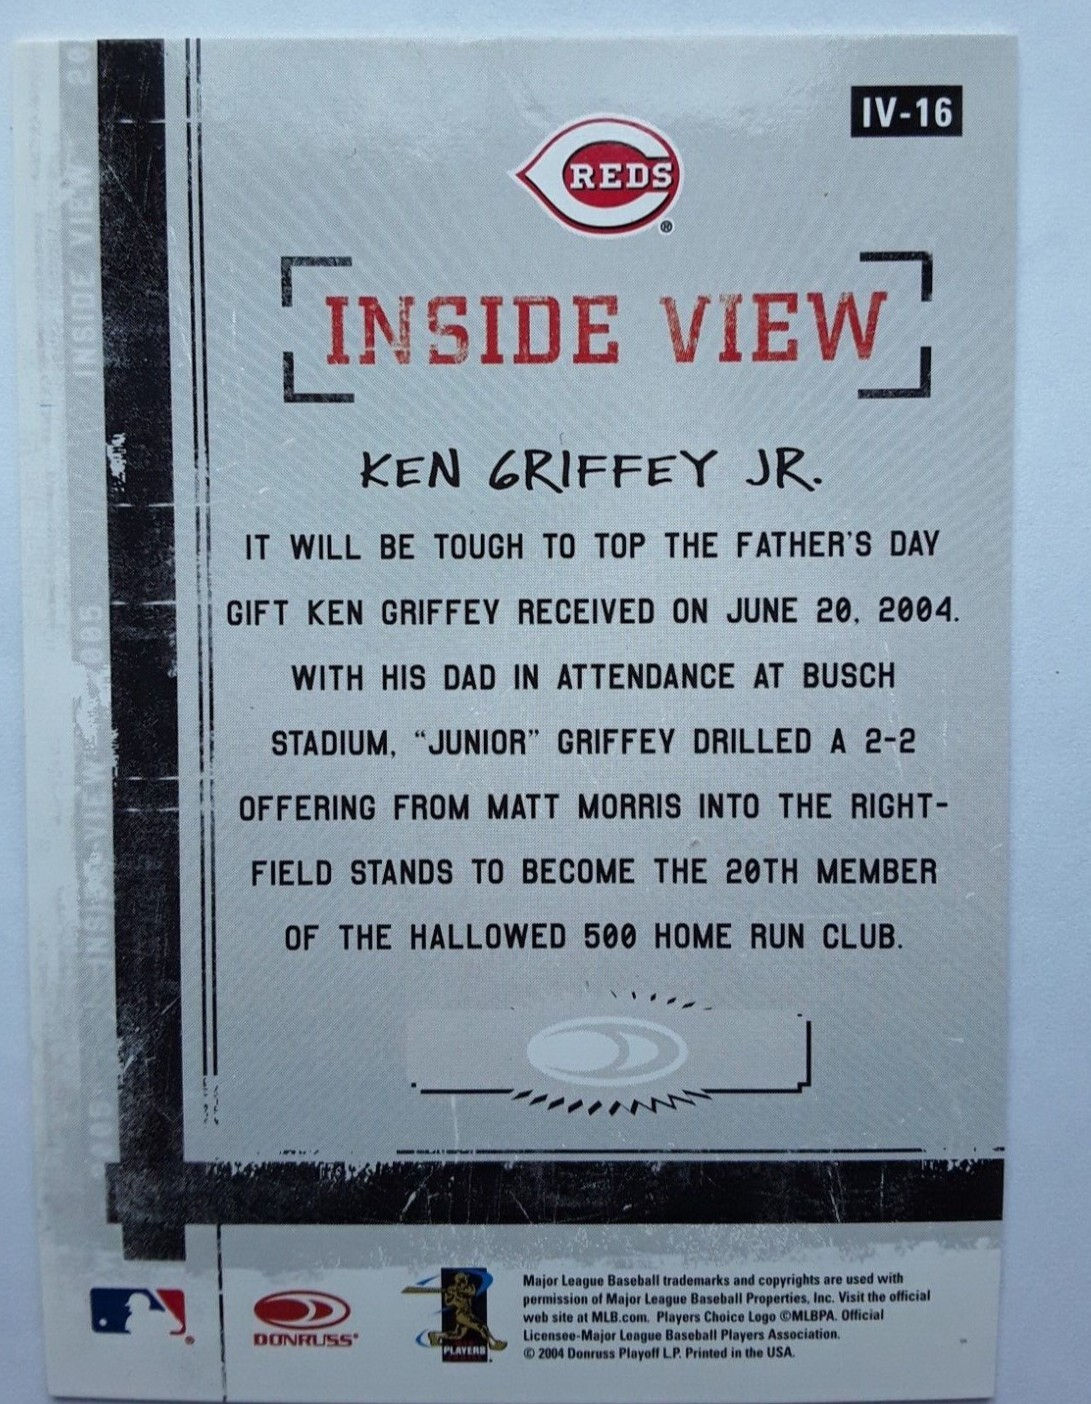 IV-16
REDS
®
INSIDE VIEW
KEN GRIFFEY JR.
IT WILL BE TOUGH TO TOP THE FATHER'S DAY
GIFT KEN GRIFFEY RECEIVED ON JUNE 20, 2004.
WITH HIS DAD IN ATTENDANCE AT BUSCH
STADIUM, "JUNIOR" GRIFFEY DRILLED A 2-2
OFFERING FROM MATT MORRIS INTO THE RIGHT-
FIELD STANDS TO BECOME THE 20TH MEMBER
OF THE HALLOWED 500 HOME RUN CLUB.
INSIDE VIEW 20
INSIDE VIEW 2005
2005
DONRUSS®
PLAYERS
Major League Baseball trademarks and copyrights are used with
permission of Major League Baseball Properties, Inc. Visit the official
web site at MLB.com. Players Choice Logo ©MLBPA. Official
Licensee-Major League Baseball Players Association.
© 2004 Donruss Playoff L.P. Printed in the USA.